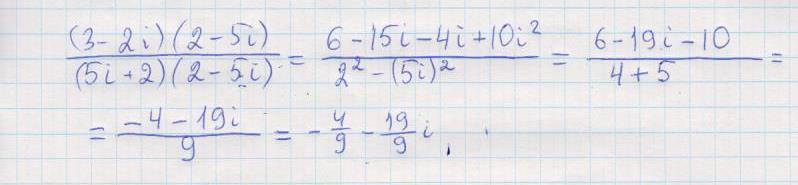 (3-2i)(2-5i)/(5i+2)(2-5i) = 6-15i-4i+10i²/2²-(5i)² = 6-19i-10/4+5 =
= -4-19i/9 = -4/9-19/9i,